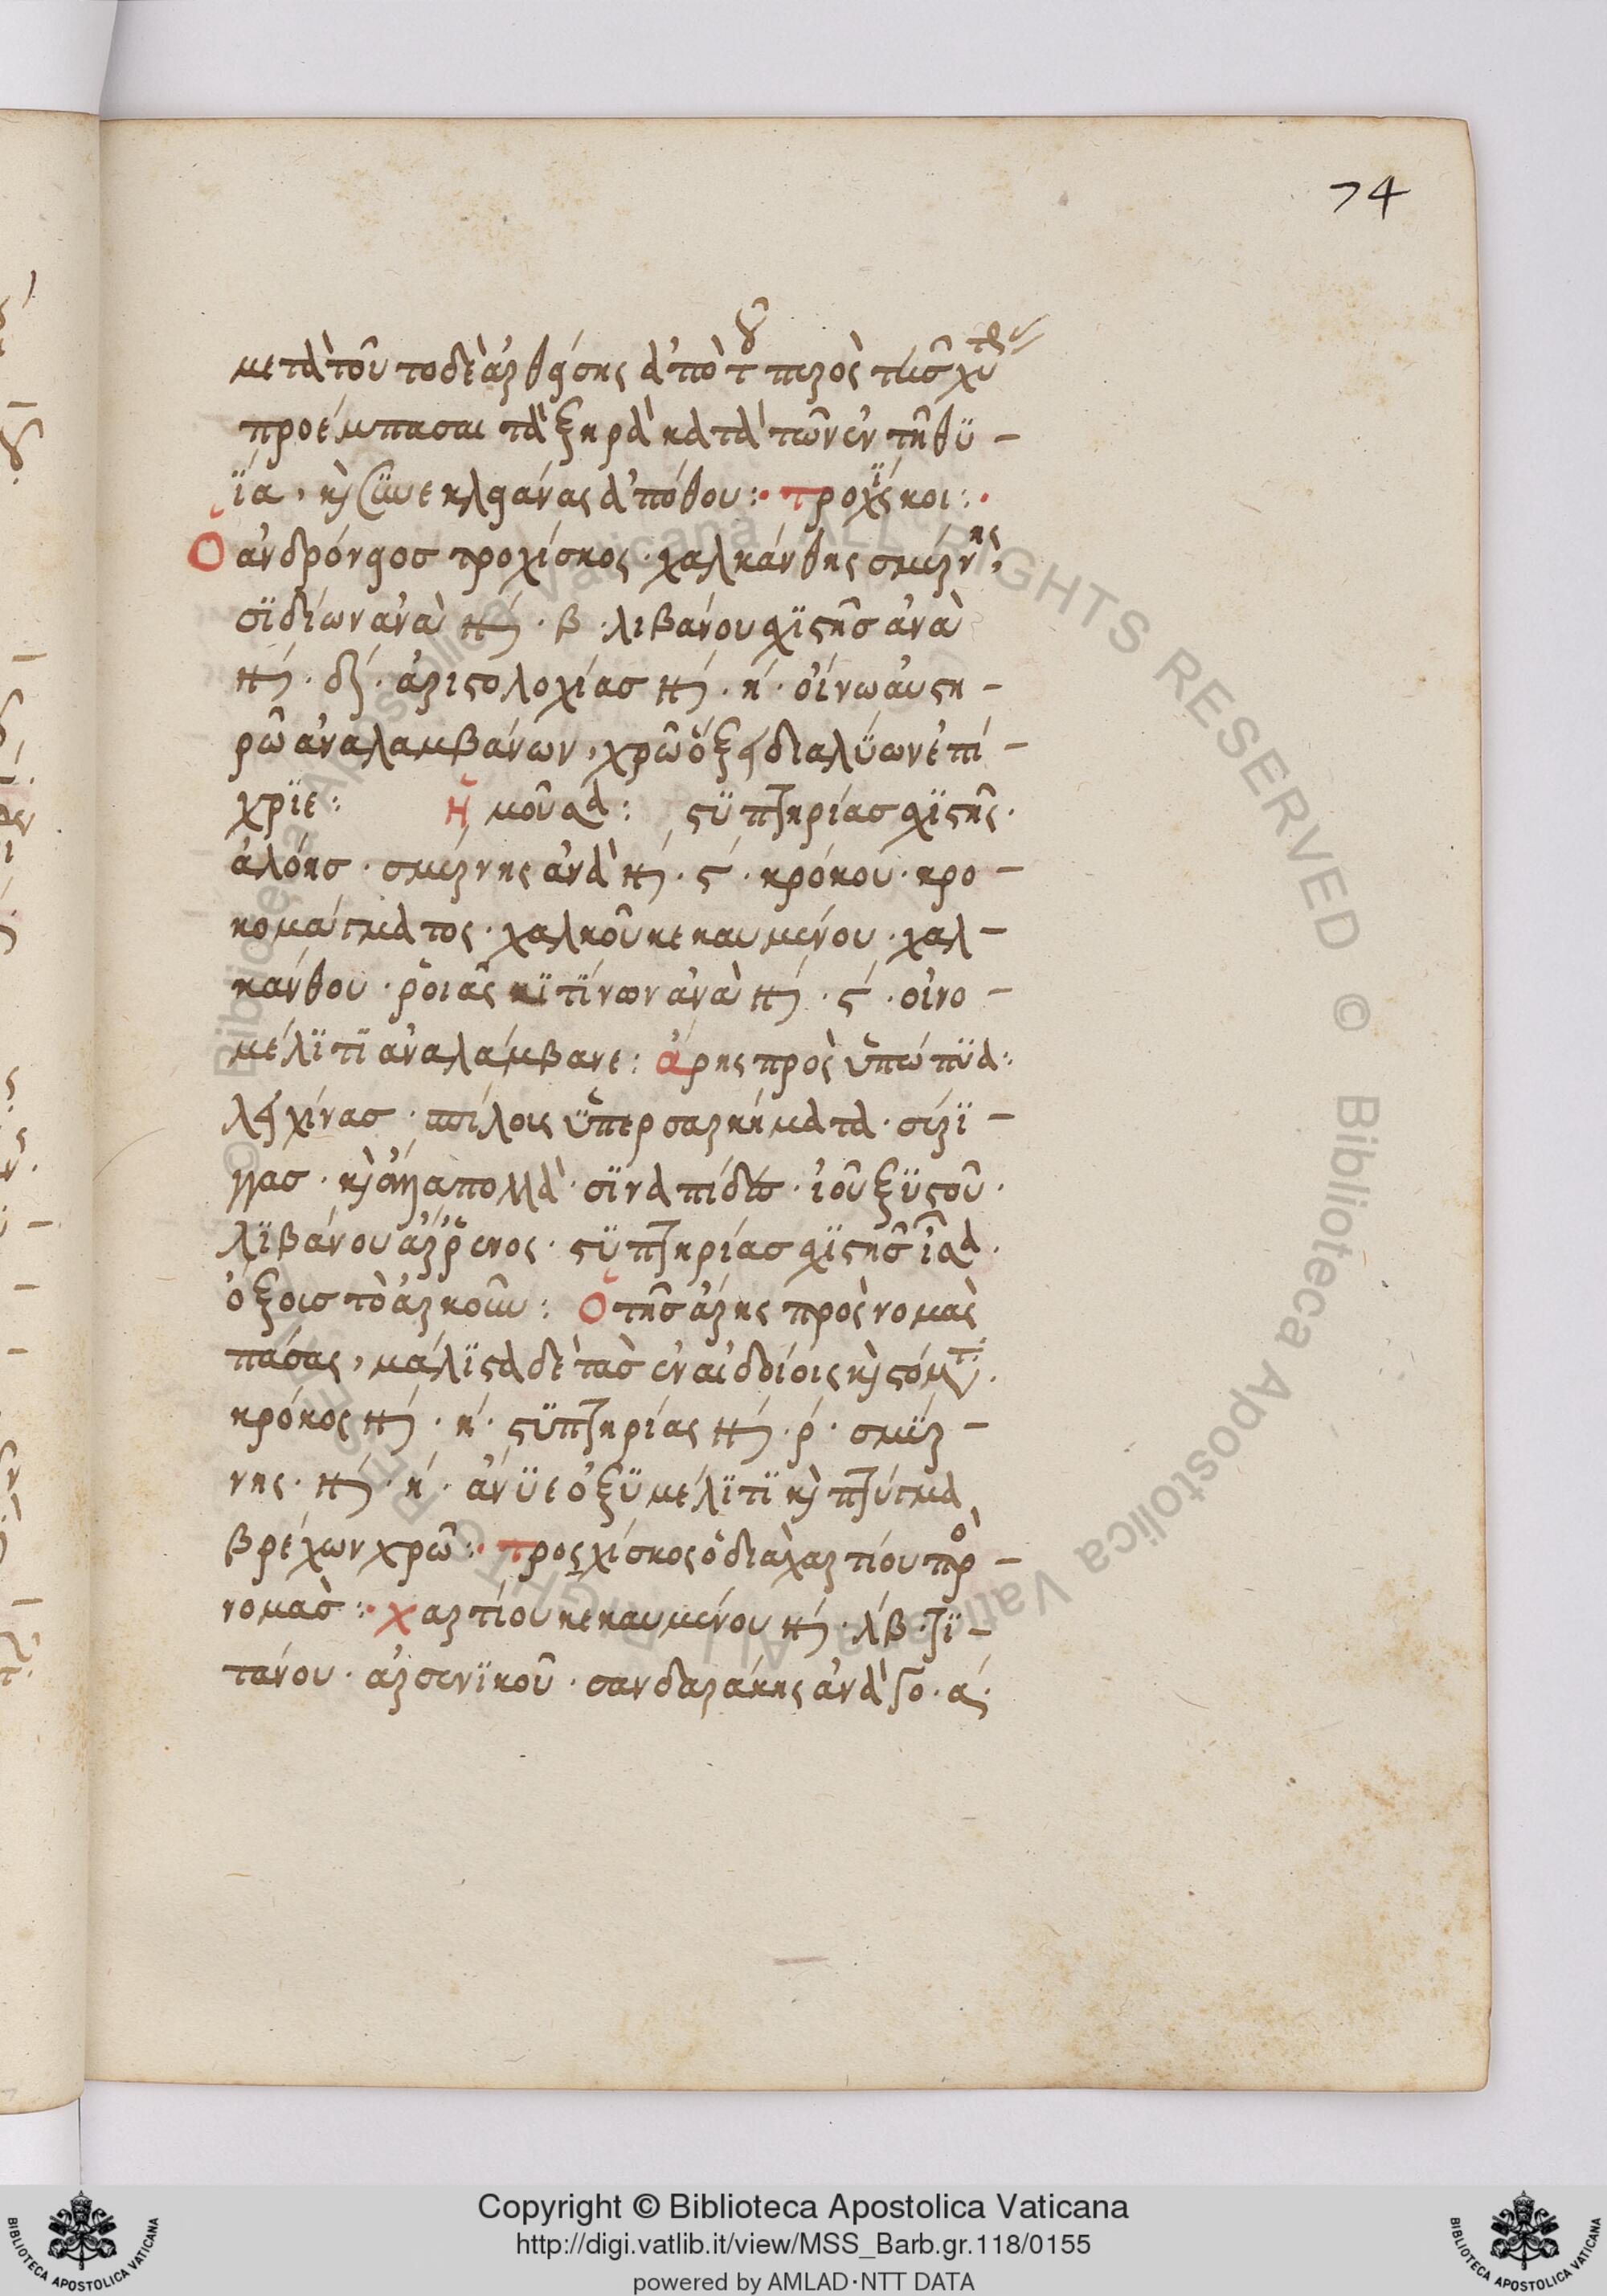 74
μετὰ τοῦ το δὲ ἀρθείσης ἀπὸ τοῦ πυρὸς τῆς χύτρας
προέμπασαι τὰ ξηρὰ κατὰ τῶν ἐν τῆ θϋ –
ΐα, κὴ συνεκλειάνας ἀπόθου :· τροχΐσκοι :·
Ὁ ἀνδρόνειος τροχίσκος · χαλκάνθης σμύρνης,
σϊδίων ἀνὰ · β · λιβάνου χϊστῆς ἀνὰ
δʹ · ἀριστολοχίας · ηʹ · οἴνω αὐστη –
ρῶ ἀναλαμβάνων, χρῶ ὄξει διαλύων ἐπί –
χρϊε : Ἡ μοῦσα : στϋπτηρίας χϊστῆς ·
ἀλόης · σμύρνης ἀνὰ · ϛʹ · κρόκου · κρο –
κομάγματος · χαλκοῦ κεκαυμένου · χαλ –
κάνθου · ῥοιᾶς κϊτΐνων ἀνὰ · ϛʹ · οἰνο –
μέλϊτϊ ἀναλάμβανε : ἄρης πρὸς ὑπώπϋα :
λειχίνας · ψίλους ὑπερσαρκήματα · σύρϊ –
γγας · κὴ ἄλλα πολλὰ · σϊναπίδια · ἰοῦ ξϋστοῦ ·
λϊβάνου ἄῤῥενος · στϋπτηρίας χϊστῆς ἴσα ·
ὄξοις τὸ ἀρκοῦν : Ὁ τῆς ἄρης πρὸς νομὰς
πάσας, μάλϊστα δὲ τὰς ἐν αἰδοίοις κὴ στόματι ·
κρόκος · ηʹ · στϋπτηρίας · ρʹ · σμϋρ –
νης · ηʹ · ἄνϋε ὀξϋμέλϊτϊ κὴ πτύγμα
βρέχων χρῶ :· τροχίσκος ὁ διὰ χαρτίου πρὸ –
νομὰς :· χαρτίου κεκαυμένου · λβ · τϊ –
τάνου · ἀρσενϊκοῦ · σανδαράκης ἀνὰ · αʹ ·
Copyright © Biblioteca Apostolica Vaticana
http://digi.vatlib.it/view/MSS_Barb.gr.118/0155
powered by AMLAD·NTT DATA
BIBLIOTECA APOSTOLICA VATICANA
BIBLIOTECA APOSTOLICA VATICANA